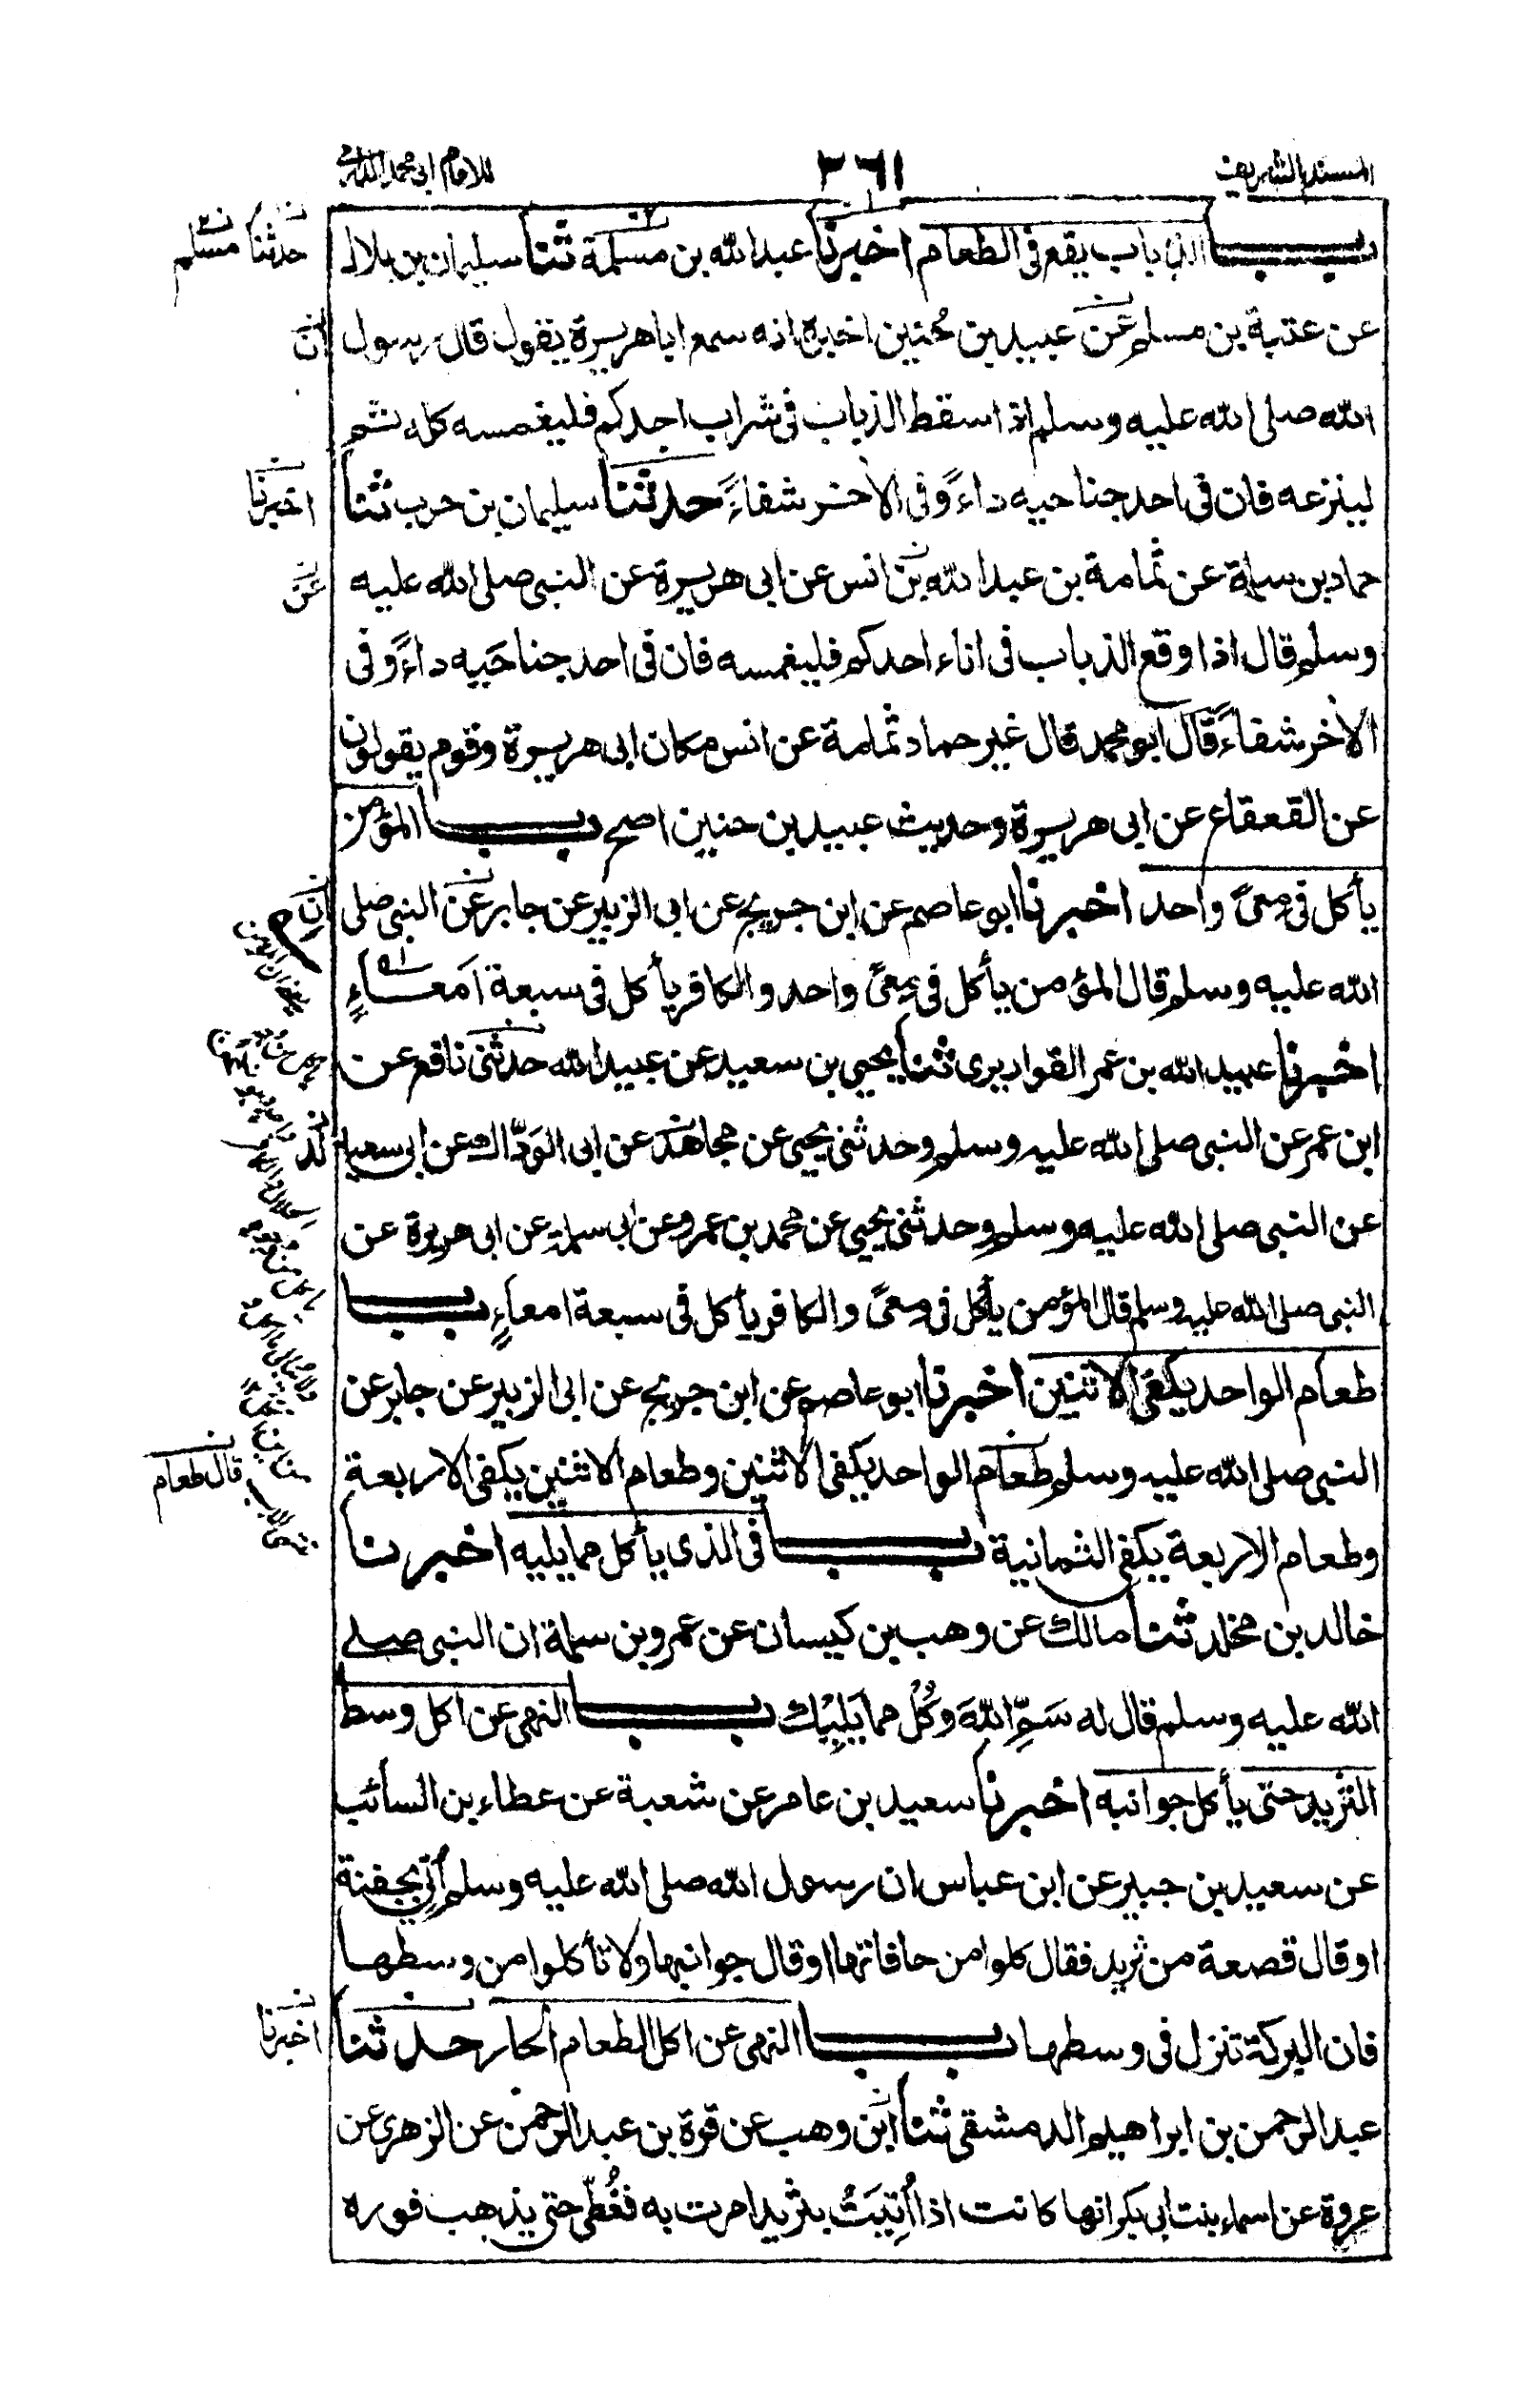 المسند الشريف
٢٦١
للامام ابى محمد الدارمى
بـــاب الذباب يقع فى الطعام اخبرنا عبد الله بن مسلمة ثنا سليمان بن بلال
حدثنا مسلم
عن عتبة بن مسلم عن عبيد بن حُنين اخبره انه سمع ابا هريرة يقول قال رسول
ان
الله صلى الله عليه وسلم اذا سقط الذباب فى شراب احدكم فليغمسه كله ثم
لينزعه فان فى احد جناحيه داءً وفى الاخر شفاءً حدثنا سليمان بن حرب ثنا
اخبرنا
حماد بن سلمة عن ثمامة بن عبد الله بن انس عن ابى هريرة عن النبى صلى الله عليه
عن
وسلم قال اذا وقع الذباب فى اناء احدكم فليغمسه فان فى احد جناحَيه داءً وفى
الاخر شفاءً قال ابو محمد قال غير حماد ثمامة عن انس مكان ابى هريرة وقوم يقولون
عن القعقاع عن ابى هريرة وحديث عبيد بن حنين اصح بـــاب المؤمن
يأكل فى مِعىً واحد اخبرنا ابو عاصم عن ابن جريج عن ابى الزبير عن جابر عن النبى صلى
ان
الله عليه وسلم قال المؤمن يأكل فى مِعىً واحد والكافر يأكل فى سبعة اَمعاءٍ
اخبرنا عبيد الله بن عمر القواريرى ثنا يحيى بن سعيد عن عبيد الله حدثنى نافع عن
ابن عمر عن النبى صلى الله عليه وسلم وحدثنى يحيى عن مجاهد عن ابى الوَدّاك عن ابى سعيد
عن النبى صلى الله عليه وسلم وحدثنى يحيى عن محمد بن عمرو عن ابى سلمة عن ابى هريرة عن
النبى صلى الله عليه وسلم قال المؤمن يأكل فى مِعىً والكافر يأكل فى سبعة امعاءٍ بـــاب
طعام الواحد يكفى الاثنين اخبرنا ابو عاصم عن ابن جريج عن ابى الزبير عن جابر عن
النبى صلى الله عليه وسلم طعام الواحد يكفى الاثنين وطعام الاثنين يكفى الاربعة
قال طعام
وطعام الاربعة يكفى الثمانية بـــاب فى الذى يأكل مما يليه اخبرنا
خالد بن مخلد ثنا مالك عن وهب بن كيسان عن عمرو بن سلمة ان النبى صلى
الله عليه وسلم قال له سَمِّ اللهَ وكُلْ مما يَلِيْكَ بـــاب النهى عن اكل وسط
الثريد حتى يأكل جوانبه اخبرنا سعيد بن عامر عن شعبة عن عطاء بن السائب
عن سعيد بن جبير عن ابن عباس ان رسول الله صلى الله عليه وسلم اُتِى بجفنة
او قال قصعة من ثريد فقال كلوا من حافاتها او قال جوانبها ولا تأكلوا من وسطها
فان البركة تنزل فى وسطها بـــاب النهى عن اكل الطعام الحار حدثنا
اخبرنا
عبد الرحمن بن ابراهيم الدمشقى ثنا ابن وهب عن قرة بن عبد الرحمن عن الزهرى عن
عروة عن اسماء بنت ابى بكر انها كانت اذا اُتِيَتْ بثريد امرت به فغُطِّى حتى يذهب فوره